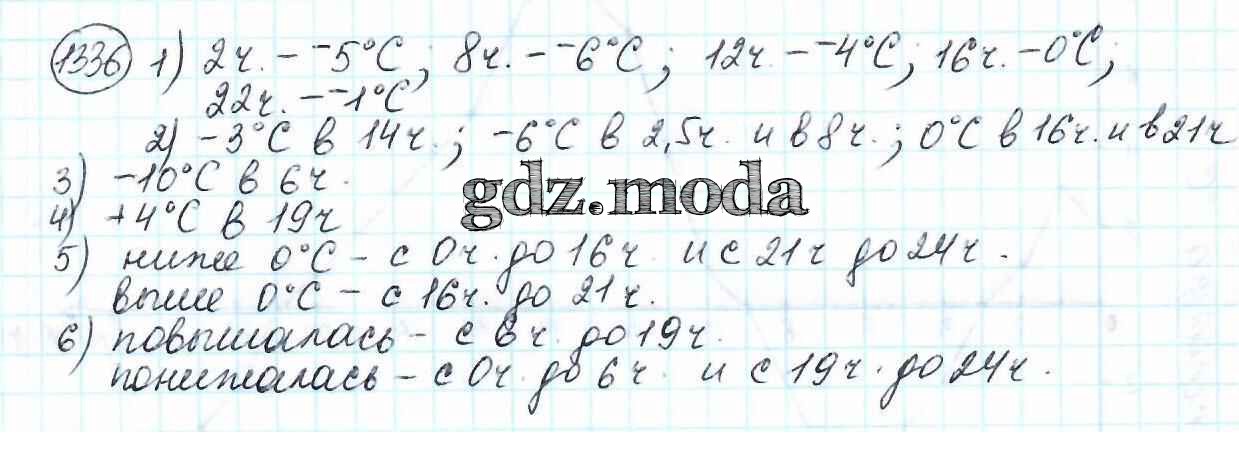 1336 1) 2ч. – -5°C; 8ч. – -6°C; 12ч – -4°C; 16ч. – 0°C;
22ч. – -1°C
2) -3°C в 14ч.; -6°C в 2,5ч. и в 8ч.; 0°C в 16ч. и в 21ч
3) -10°C в 6ч.
gdz.moda
4) +4°C в 19ч
5) ниже 0°C – с 0ч. до 16ч и с 21ч до 24ч.
выше 0°C – с 16ч. до 21ч.
6) повышалась – с 6ч. до 19ч.
понижалась – с 0ч. до 6ч. и с 19ч. до 24ч.